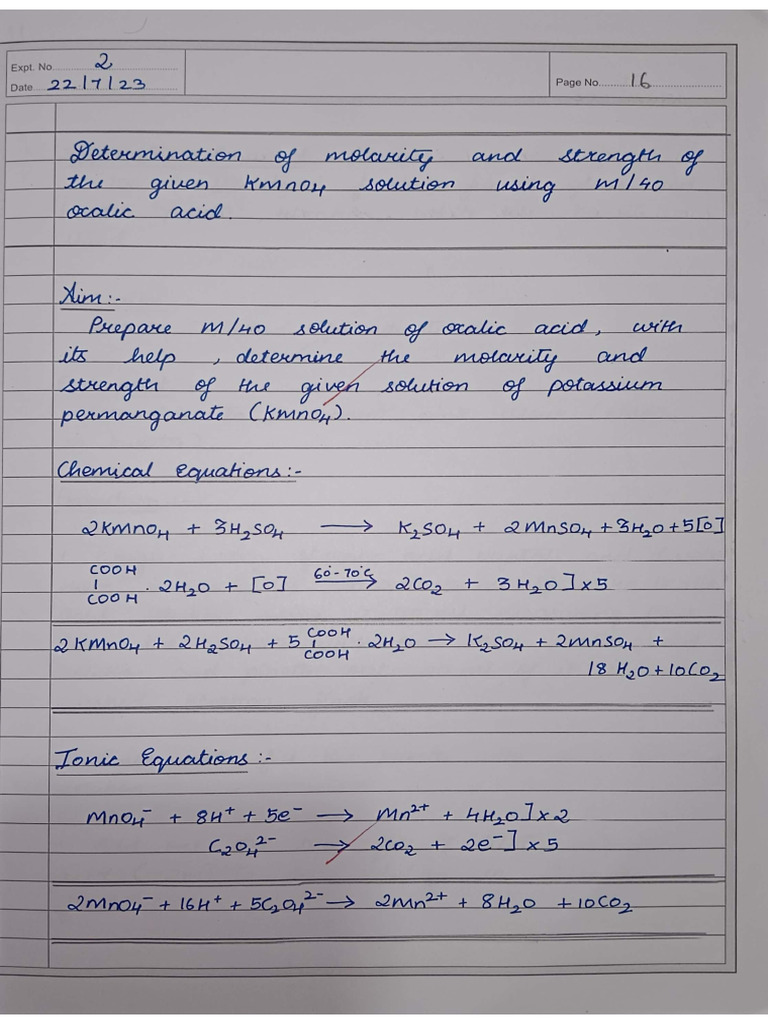 Expt. No. 2
Date 22/7/23
Page No. 16
Determination of molarity and strength of
the given KMnO4 solution using M/40
oxalic acid.
Aim:-
Prepare M/40 solution of oxalic acid, with
its help, determine the molarity and
strength of the given solution of potassium
permanganate (KMnO4).
Chemical equations:-
2KMnO4 + 3H2SO4 ⟶ K2SO4 + 2MnSO4 + 3H2O + 5[O]
COOH
| · 2H2O + [O] 60°-70°C ⟶ 2CO2 + 3H2O] x 5
COOH
2KMnO4 + 2H2SO4 + 5 COOH | COOH · 2H2O → K2SO4 + 2MnSO4 +
18 H2O + 10CO2
Ionic Equations:-
MnO4⁻ + 8H⁺ + 5e⁻ ⟶ Mn²⁺ + 4H2O] x 2
C2O4²⁻ ⟶ 2CO2 + 2e⁻] x 5
2MnO4⁻ + 16H⁺ + 5C2O4²⁻ → 2Mn²⁺ + 8H2O + 10CO2